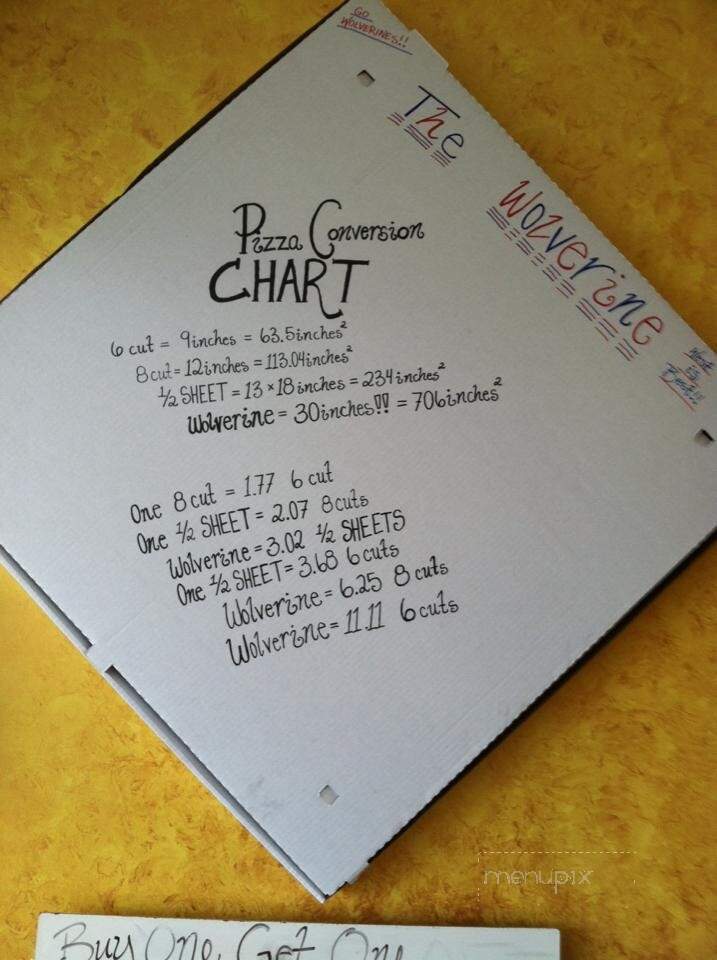 GO
WOLVERINES!!
The
Wolverine
Pizza Conversion
CHART
6 cut = 9inches = 63.5inches²
8cut = 12inches = 113.04inches²
½ SHEET = 13 × 18 inches = 234 inches²
Wolverine = 30inches!! = 706inches²
One 8 cut = 1.77 6 cut
One ½ SHEET = 2.07 8cuts
Wolverine = 3.02 ½ SHEETS
One ½ SHEET = 3.68 6 cuts
Wolverine = 6.25 8 cuts
Wolverine = 11.11 6 cuts
West
is
Best!!
menupix
Buy One, Get One